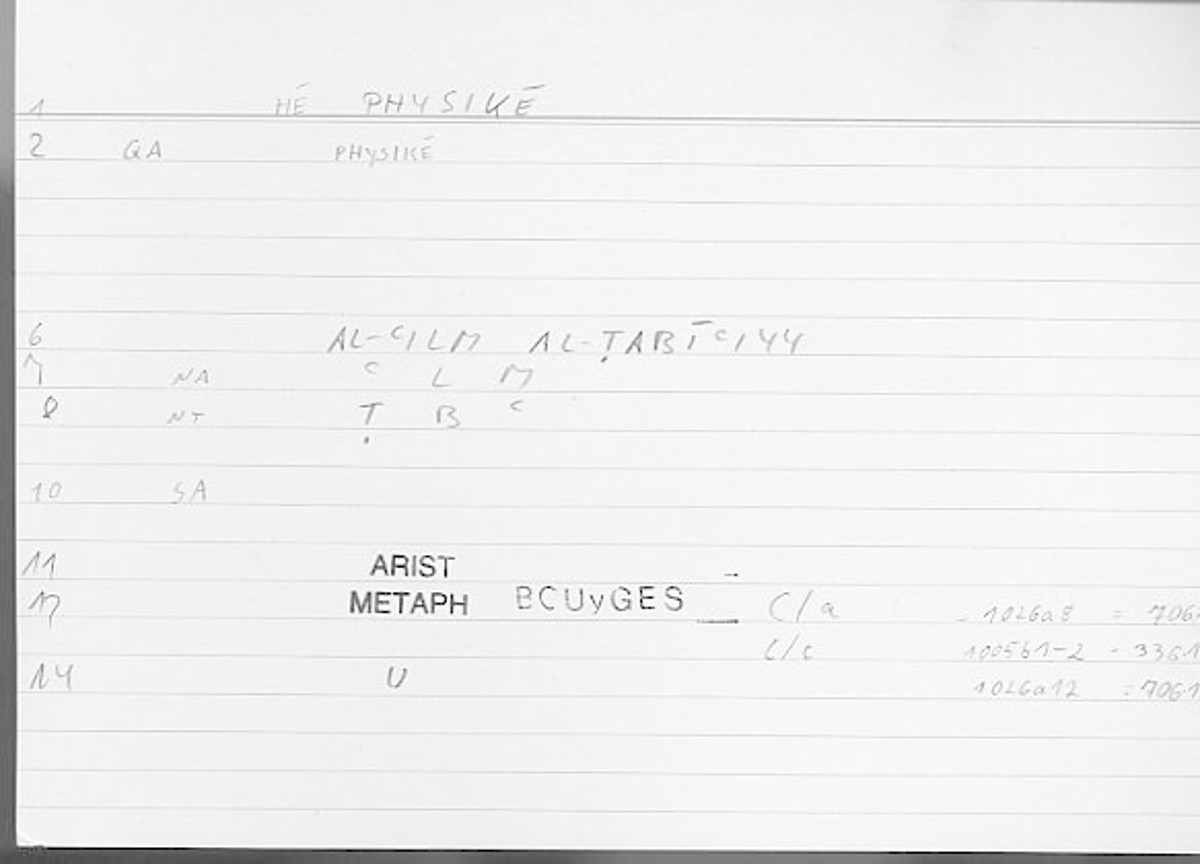 1 HĒ PHYSIKĒ
2 QA PHYSIKĒ
6 AL-ʿILM AL-ṬABĪʿIYY
7 NA ʿ L M
8 NT Ṭ B ʿ
10 SA
11 ARIST
12 METAPH BOUyGES C/a 1026a8 = 706
C/c 1005b1-2 = 336.1
14 U 1026a12 = 706.1